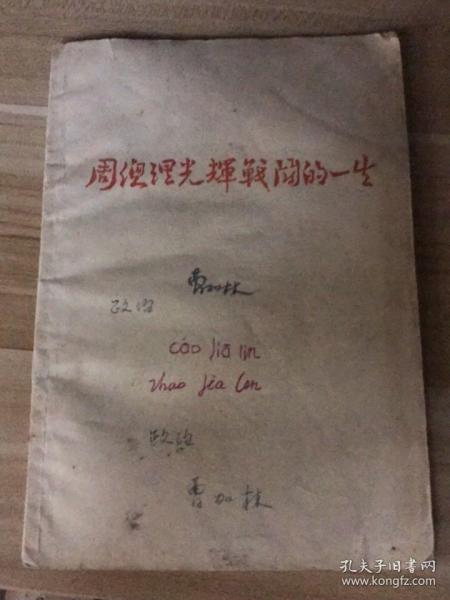 周總理光輝戰鬪的一生
曹加林
政治
cáo jiā lín
zhao jia Len
政治
曹加林
孔夫子旧书网
www.kongfz.com